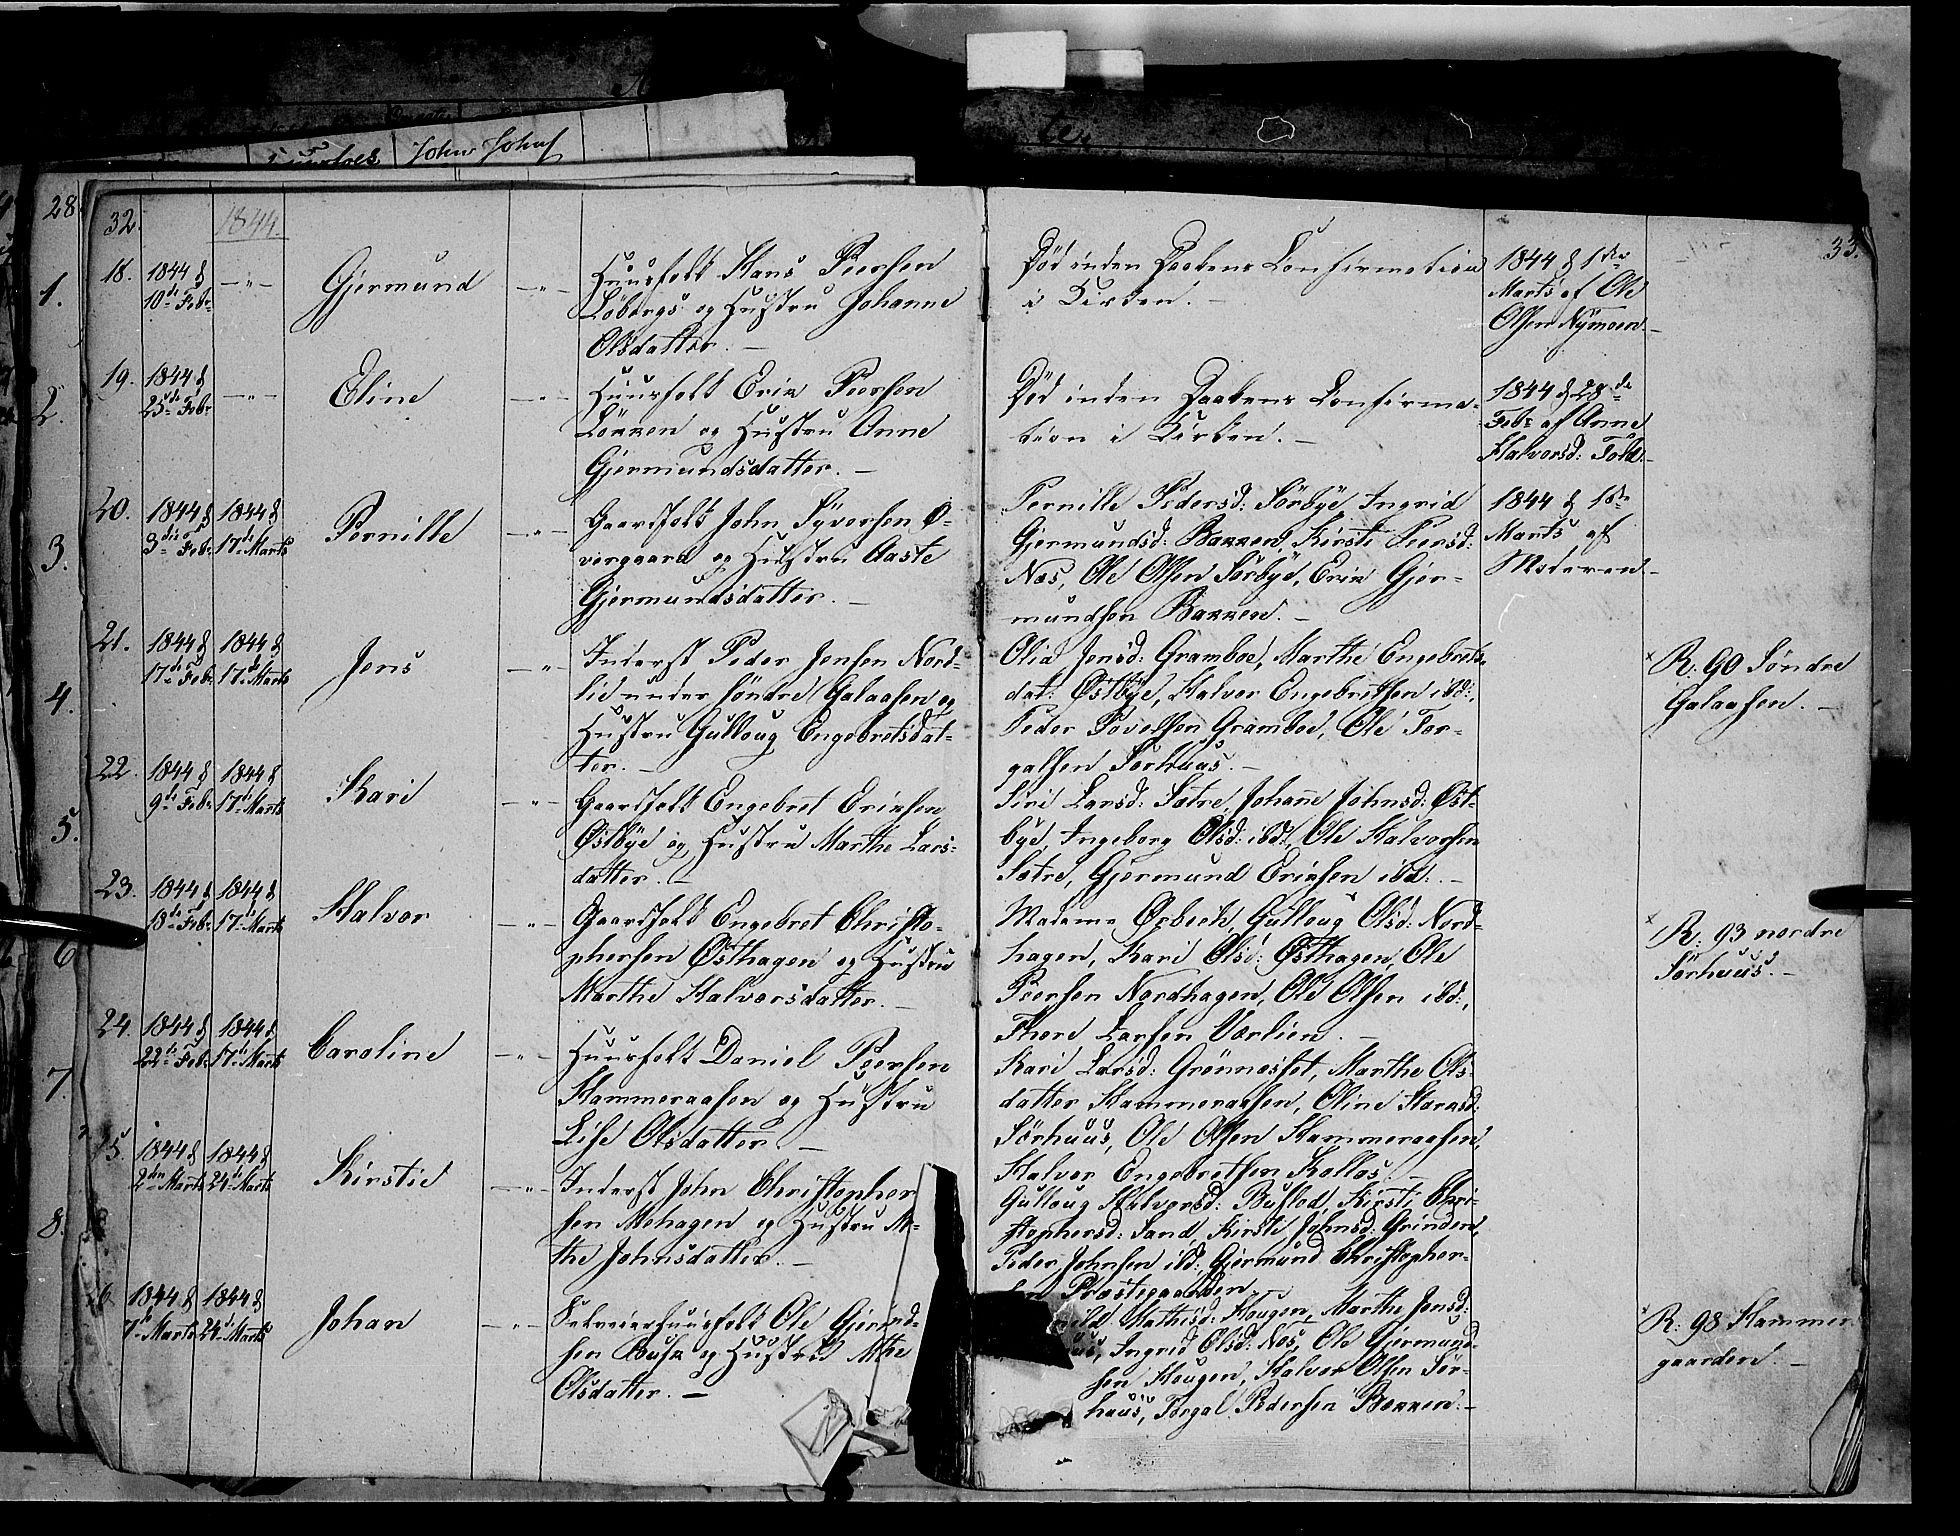 Huusfoes John Johns
28
32.
1844.
33.
18.
1844 d
10de Febr
— " —
Gjermund
— " —
Huusfolk Hans Peersen
Löbergs og Hustru Johanne
Olsdatter. —
Död inden Daabens Confirmation
i Kirken. —
1844 d 1ste
Marts af Ole
Olsen Nÿmoen. —
19.
1844 d
25de Febr
— " —
Eline
— " —
Huusfolk Erik Peersen
Lökken og Hustru Anne
Gjermundsdatter. —
Död inden Daabens Confirma-
tion i Kirken. —
1844 d 28de
Febr af Anne
Halvorsd:
20.
1844 d
3die Febr
1844 d
17de Marts
Pernille
— " —
Gaardfolk John Syversen O-
vergaard og Hustru Aaste
Gjermundsdatter. —
Pernille Pedersd: Sörbÿe, Ingrid
Gjermundsd: Bakken, Kirsti Peersd:
Næs, Ole Olsen Sörbÿe, Erik Gjer-
mundsen Bakken. —
1844 d 1ste
Marts af
Moderen. —
21.
1844 d
17de Febr
1844 d
17de Marts
Jens
— " —
Inderst Peder Jensen Nord-
lie under söndre Galaasen og
Hustru Gulloug Engebretsdat-
ter. —
Olia Jensd: Gramboe, Marthe Engebrets-
dat: Østbÿe, Halvor Engebretsen ibd:,
Peder Povelsen Gramboe, Ole Tor-
galsen Sörhuus. —
R: 90 Söndre
Galaasen. —
22.
1844 d
9de Febr
1844 d
17de Marts
Kari
— " —
Gaardfolk Engebret Eriksen
Østbÿe og Hustru Marthe Lars-
datter. —
Siri Larsd: Sætre, Johanne Johnsd: Øst-
bÿe, Ingeborg Olsd: ibd:, Ole Halvorsen
Sætre, Gjermund Eriksen ibd: —
23.
1844 d
18de Febr
1844 d
17de Marts
Halvor
— " —
Gaardfolk Engebret Christo-
phersen Østhagen og Hustru
Marthe Halvorsdatter. —
Madame Ørbech, Gulloug Olsd: Nord-
hagen, Kari Olsd: Østhagen, Ole
Peersen Nordhagen, Ole Olsen ibd:,
Thore Larsen Værlien. —
R: 93 nordre
Sörhuus. —
24.
1844 d
22de Febr
1844 d
17de Marts
Caroline
— " —
Huusfolk Daniel Peersen
Hammeraasen og Hustru
Lise Olsdatter. —
Kari Larsd: Grönnæsset, Marthe Ols-
datter Hammeraasen, Oline
Sörhuus, Ole Olsen Hammeraasen,
Halvor Engebretsen Kollos. —
25.
1844 d
2den Marts
1844 d
24de Marts
Kirstie
— " —
Inderst John Christopher
sen Mehagen og Hustru M-
the Johnsdatter. —
Gulloug Halvorsd: Buflod, Kirsti Chri-
stophersd: Sand, Kirsti Johnsd: Grinden,
Peder Johnsen ibd:, Gjermund Christopher-
sen Præstegaarden.
26.
1844 d
7de Marts
1844 d
24de Marts
Johan
— " —
Selveierhuusfolk Ole Gjermund-
sen Busk og Hustru Mthe
Olsdatter. —
Mathisd: Haugen, Marthe Jensd:
Ingrid Olsd: Næs, Ole Gjermund-
sen Haugen, Halvor Olsen Sör-
huus, Torgal Pedersen Bakken. —
R: 98 Hammer
gaarden. —
1.
2.
3.
4.
5.
6
7.
8.